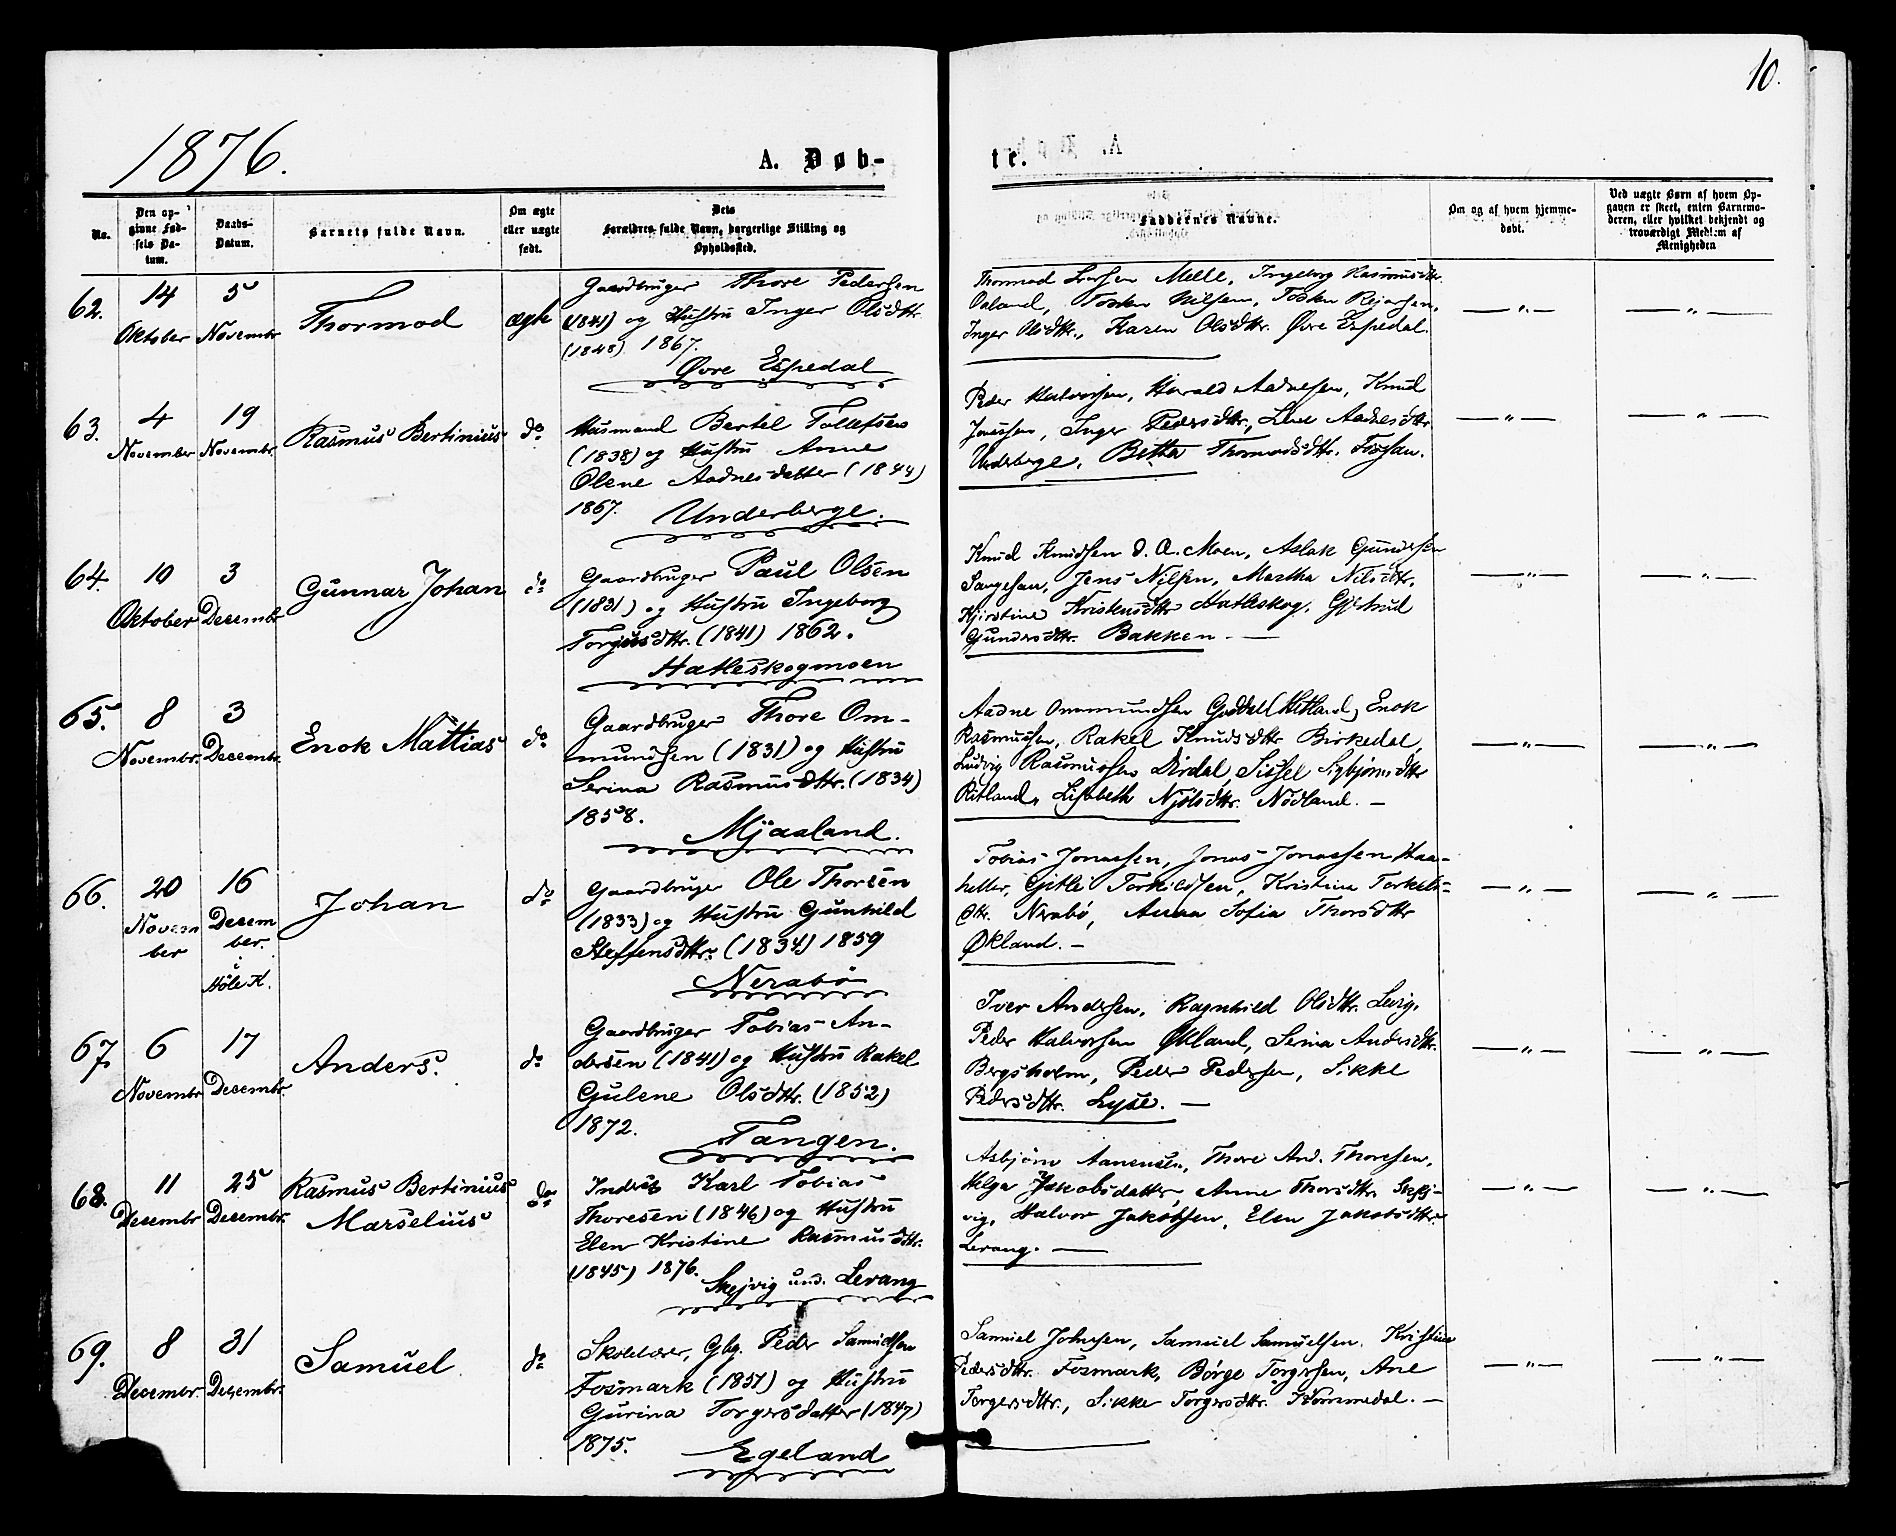 10.
1876.
A. Døb-
te.
No.
Den op-
givne Fød-
sels Da-
tum.
Daabs-
Datum.
Barnets fulde Navn.
Om ægte
eller uægte
født.
Dets
Forældres fulde Navn, borgerlige Stilling og
Opholdssted.
Faddernes Navne.
Om og af hvem hjemme-
døbt.
Ved uægte Børn af hvem Op-
gaven er skeet, enten Barnemo-
deren, eller hvilket bekjendt og
troværdigt Medlem af
Menigheden
62.
14
Oktober
5
Novembr
Thormod
ægte
Gaardbruger Thore Pedersen
(1841) og Hustru Inger Olsdttr.
(1848) 1867.
Øvre Espedal
Thormod Larsen Melle, Ingeborg Rasmusdttr
Oaland, Tosten Nilsen, Tosten Rejarsen,
Inger Olsdttr., Karen Olsdttr. Øvre Espedal.
— " —
— " —
63.
4
November
19
Novembr
Rasmus Bertinius
do
Husmand Bertel Tollefsen
(1838) og Hustru Anne
Olene Aadnesdatter (1844)
1867.
Underberge.
Peder Halvorsen, Harald Aadnesen, Knud
Jonassen, Inger Pedersdttr, Line Aadnesdttr
Underberge, Bertha Thormodsdttr. Fossan.
— " —
— " —
64.
10
Oktober
3
Decembr
Gunnar Johan
do
Gaardbruger Paul Olsen
(1831) og Hustru Ingeborg
Torjusdttr. (1841) 1862.
Hatleskogmoen
Knud Knudsen d. Æ. Moen, Aslak Gundersen
Saugesan, Jens Nilsen, Martha Nilsdttr,
Kjirstine Kristensdttr Hatleskog, Gjertrud
Gundersdttr. Bakken. —
— " —
— " —
65.
8
Novembr.
3
Decembr.
Enok Mattias
do
Gaardbruger Thore Om-
mundsen (1831) og Hustru
Serina Rasmusdttr. (1834)
1858.
Mjaaland.
Aadne Ommundsen Gjøddal (Hetland), Enok
Rasmussen, Rakel Knudsdttr Birkedal,
Ludvig Rasmussen Dirdal, Sissel Sigbjørnsdttr
Ritland, Lisabeth Njølsdttr. Nødland. —
— " —
— " —
66.
20
Novem
ber
16
Desem
ber.
i
Høle K.
Johan
do
Gaardbruger Ole Thorsen
(1833) og Hustru Gunhild
Steffensdttr. (1834) 1859
Nerabø
Tobias Jonassen, Jonas Jonassen Haa-
heller, Gitle Torkildsen, Kristine Torkels-
dtr. Nerabø, Anna Sofia Thorsdttr
Økland. —
— " —
— " —
67.
6
Novembr
17
Decembr.
Anders.
do
Gaardbruger Tobias An-
dersen (1841) og Hustru Rakel
Gulene Olsdttr. (1852)
1872.
Tangen.
Iver Andersen, Ragnhild Olsdttr. Levig,
Peder Halvorsen Økland, Serina Andersdttr.
Bergsholm, Peder Pedersen, Sikke
Pedersdttr. Lyse. —
— " —
— " —
68.
11
Decembr
25
Decembr.
Rasmus Bertinius
Marselius
do
Inderst Karl Tobias
Thoresen (1846) og Hustru
Elen Kristine Rasmusdttr.
(1845) 1876.
Skejvig und. Levang
Asbjørn Aanensen, Thore And. Thoresen,
Helga Jakobsdatter, Anne Thorsdttr Skej-
vig, Halvor Jakobsen, Elen Jakobsdttr.
Levang. —
— " —
— " —
69.
8
Decembr.
31
Decembr.
Samuel
do
Skolelærer, Gbg. Peder Samuelsen
Fosmark (1851) og Hustru
Gurina Torgersdatter (1847)
1875.
Egeland
Samuel Johnsen, Samuel Samuelsen, Kristine
Pedersdttr. Fosmark, Børge Torgersen, Ane
Torgersdttr., Sikke Torgersdttr. Kommedal. —
— " —
— " —